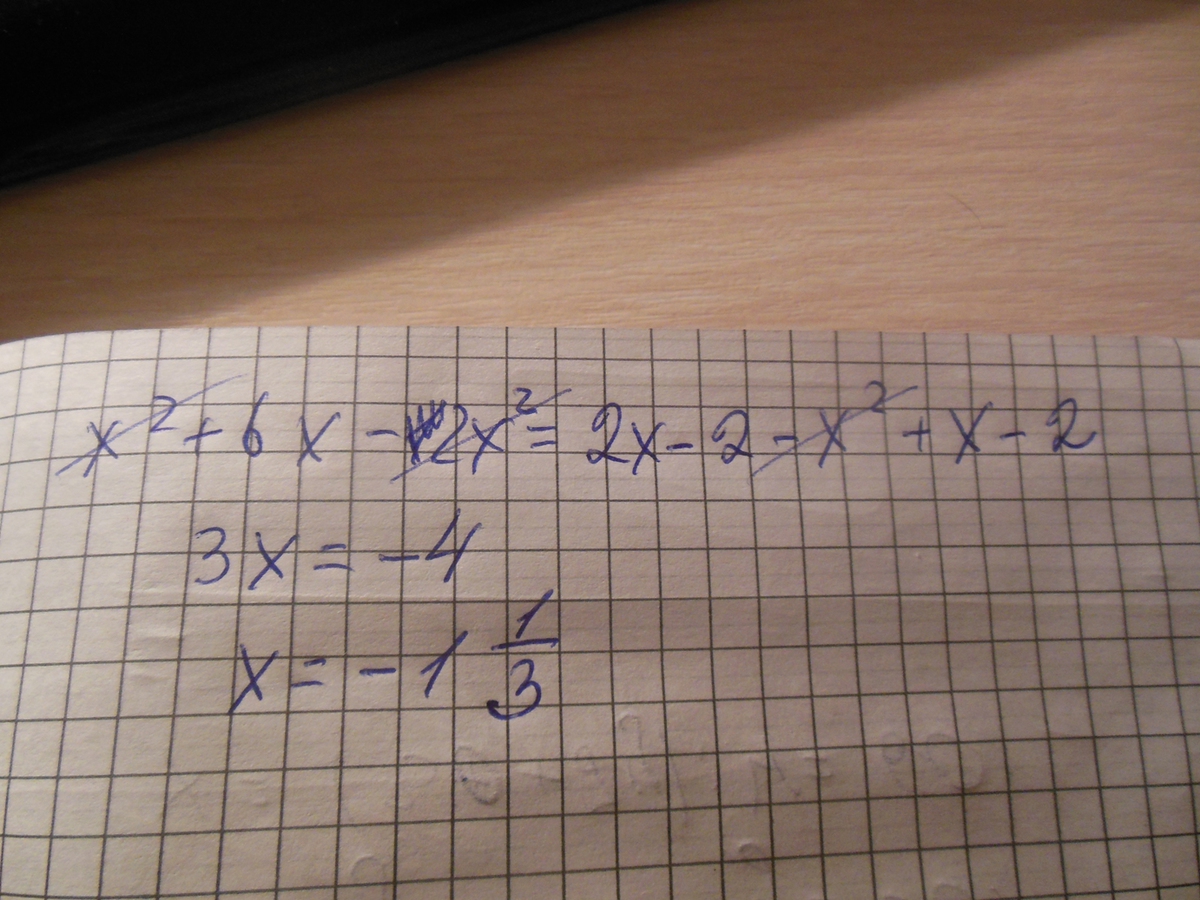 x² + 6x - 2x² = 2x - 2 - x² + x - 2
3x = -4
x = -1 1/3